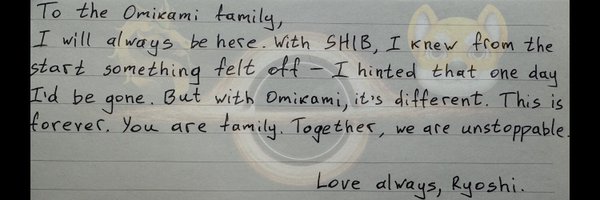 To the Omikami family,
I will always be here. With SHIB, I knew from the
start something felt off – I hinted that one day
I'd be gone. But with Omikami, it's different. This is
forever. You are family. Together, we are unstoppable.
Love always, Ryoshi.